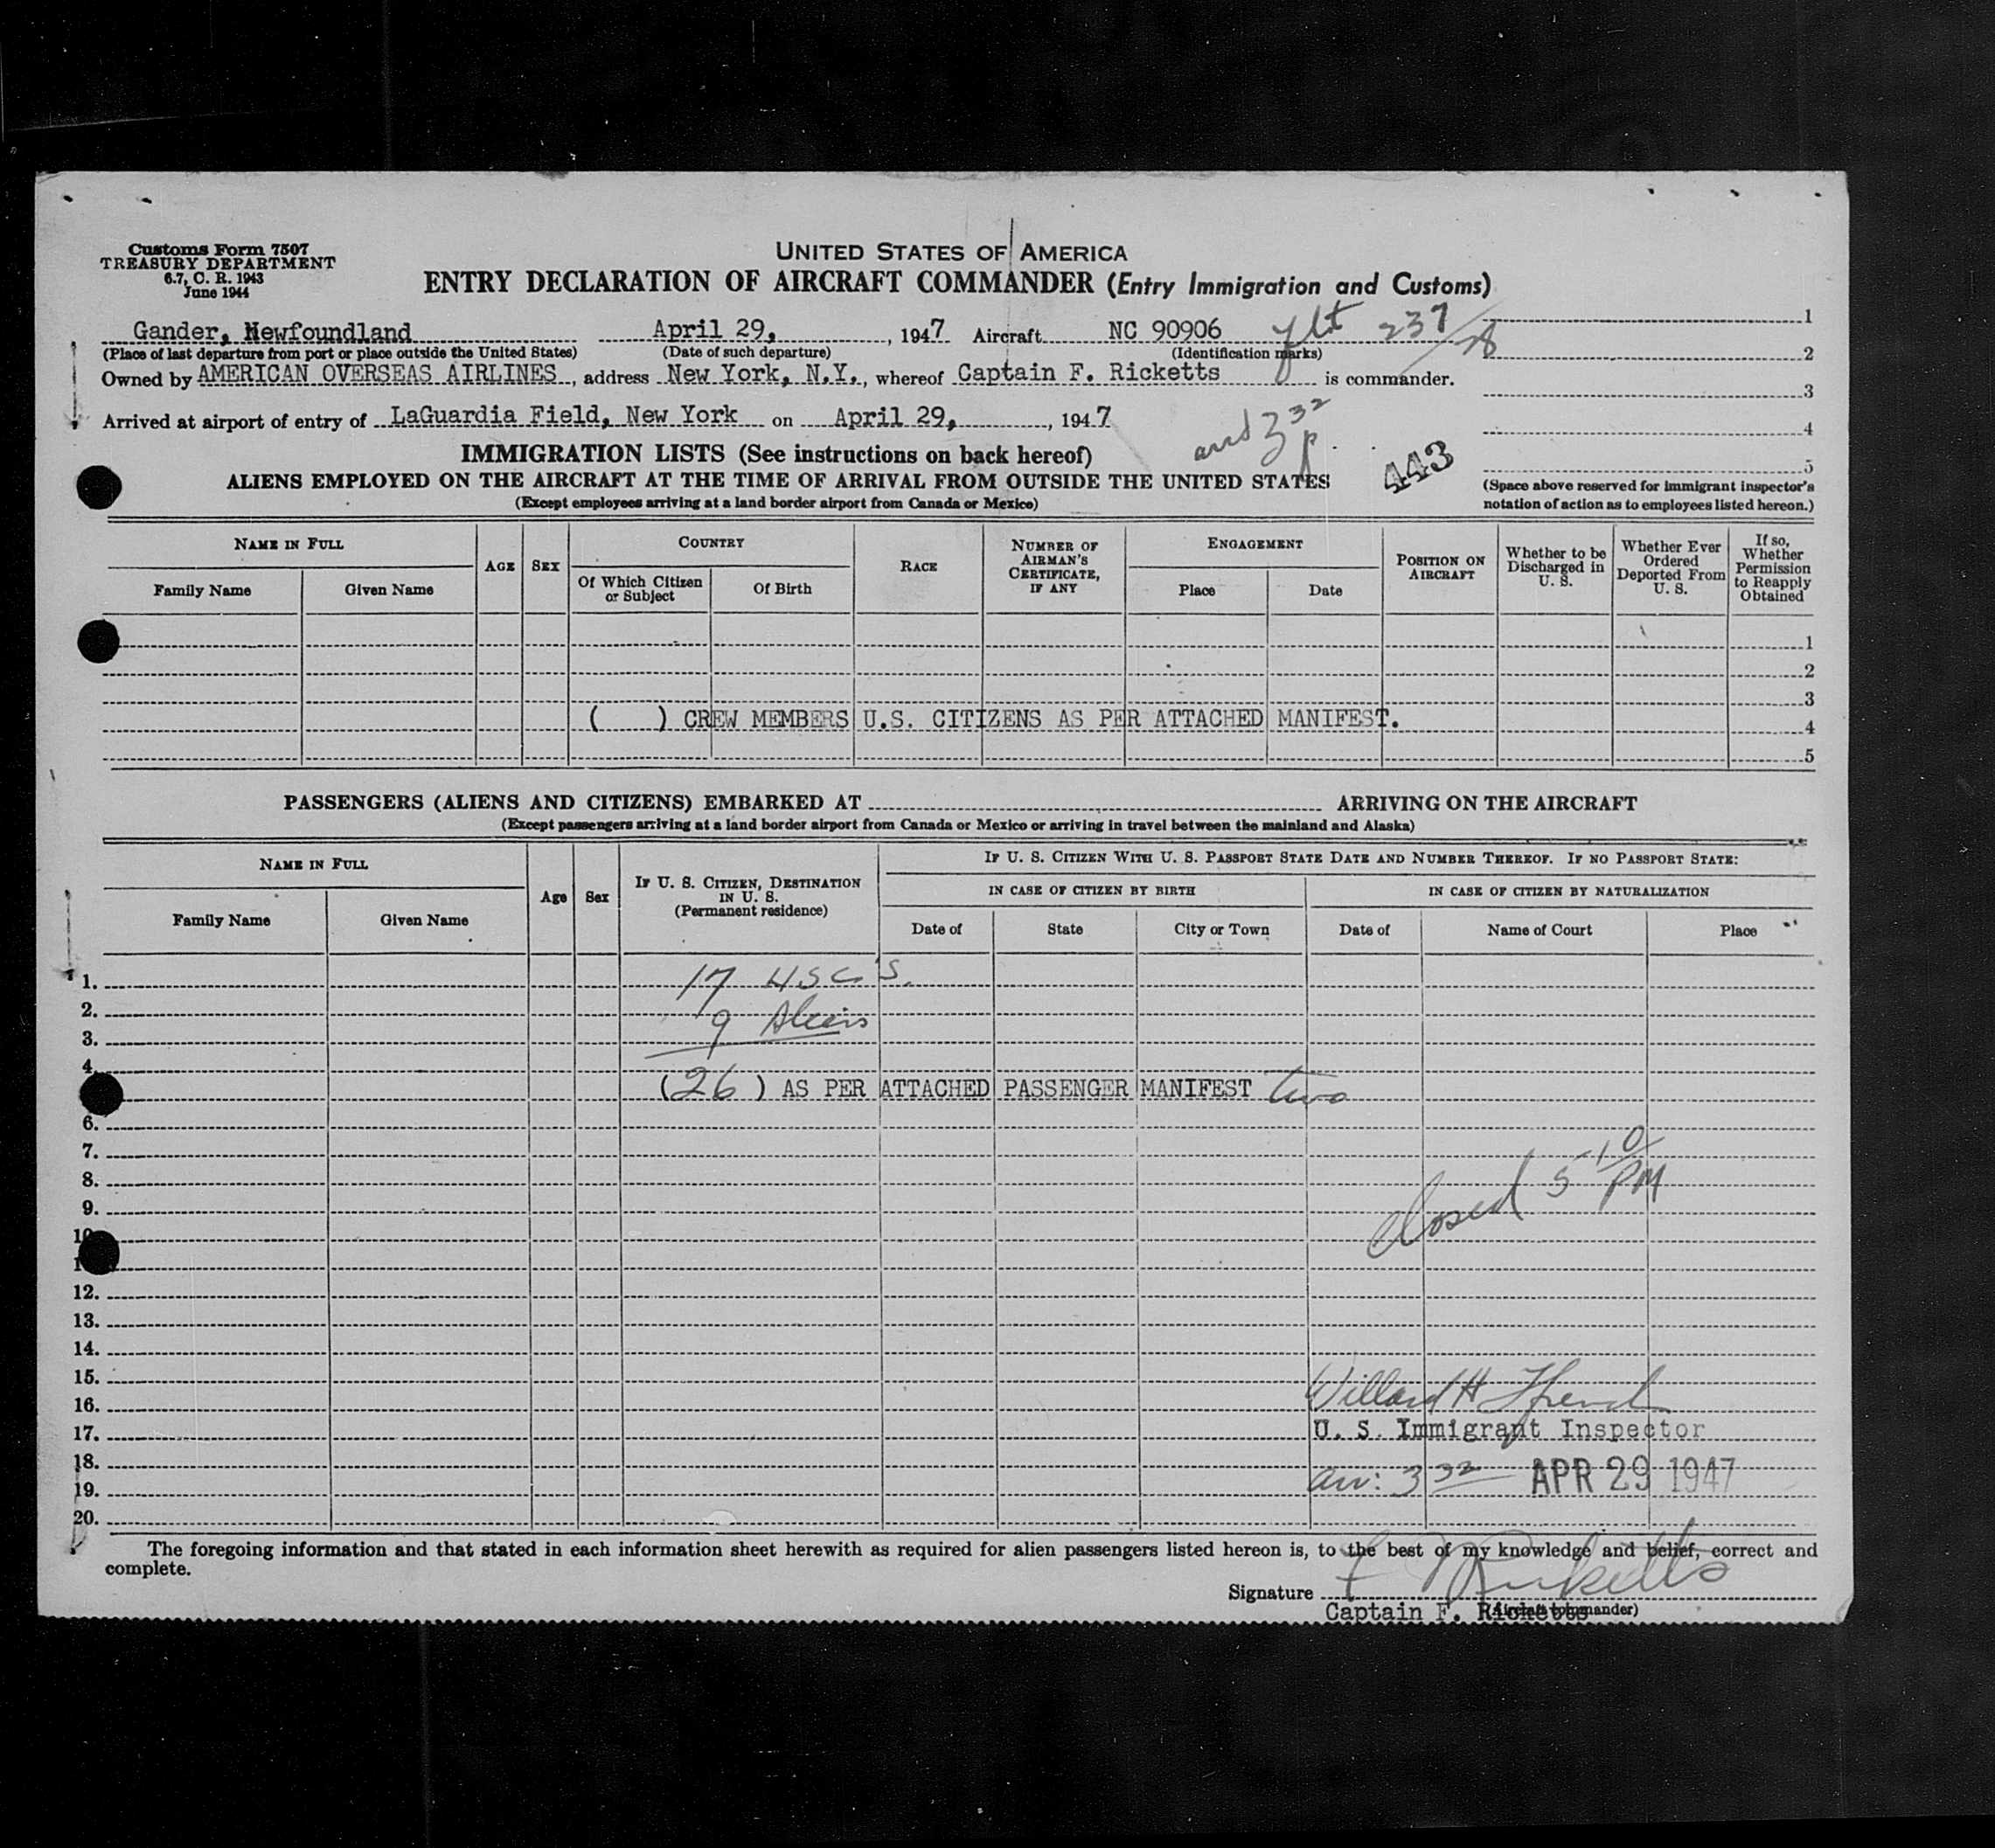 Customs Form 7507
TREASURY DEPARTMENT
6.7, C. R. 1943
June 1944
UNITED STATES OF AMERICA
ENTRY DECLARATION OF AIRCRAFT COMMANDER (Entry Immigration and Customs)
Gander, Newfoundland April 29, , 1947 Aircraft NC 90906 flt 237/28 1
(Place of last departure from port or place outside the United States) (Date of such departure) (Identification marks) 2
Owned by AMERICAN OVERSEAS AIRLINES , address New York, N.Y., whereof Captain F. Ricketts is commander.
3
Arrived at airport of entry of LaGuardia Field, New York on April 29, , 1947
4
arrd 3 32 p
IMMIGRATION LISTS (See instructions on back hereof)
443
5
ALIENS EMPLOYED ON THE AIRCRAFT AT THE TIME OF ARRIVAL FROM OUTSIDE THE UNITED STATES
(Space above reserved for immigrant inspector's
(Except employees arriving at a land border airport from Canada or Mexico)
notation of action as to employees listed hereon.)
NAME IN FULL
Family Name Given Name
AGE
SEX
COUNTRY
Of Which Citizen
or Subject
Of Birth
RACE
NUMBER OF
AIRMAN'S
CERTIFICATE,
IF ANY
ENGAGEMENT
Place Date
POSITION ON
AIRCRAFT
Whether to be
Discharged in
U. S.
Whether Ever
Ordered
Deported From
U. S.
If so,
Whether
Permission
to Reapply
Obtained
1
2
3
( ) CREW MEMBERS U.S. CITIZENS AS PER ATTACHED MANIFEST.
4
5
PASSENGERS (ALIENS AND CITIZENS) EMBARKED AT ARRIVING ON THE AIRCRAFT
(Except passengers arriving at a land border airport from Canada or Mexico or arriving in travel between the mainland and Alaska)
NAME IN FULL
Family Name Given Name
Age
Sex
IF U. S. CITIZEN, DESTINATION
IN U. S.
(Permanent residence)
IF U. S. CITIZEN WITH U. S. PASSPORT STATE DATE AND NUMBER THEREOF. IF NO PASSPORT STATE:
IN CASE OF CITIZEN BY BIRTH IN CASE OF CITIZEN BY NATURALIZATION
Date of State City or Town Date of Name of Court Place
1. 17 USC'S.
2. 9 Aliens
3.
4.
(26) AS PER ATTACHED PASSENGER MANIFEST two
6.
7.
8. closed 5 10 PM
9.
10
1
12.
13.
14.
15.
16. Willard H French
17. U. S. Immigrant Inspector
18.
19. arr: 3 32 APR 29 1947
20.
The foregoing information and that stated in each information sheet herewith as required for alien passengers listed hereon is, to the best of my knowledge and belief, correct and
complete.
Signature F Ricketts
Captain F. Ricketts (Aircraft Commander)